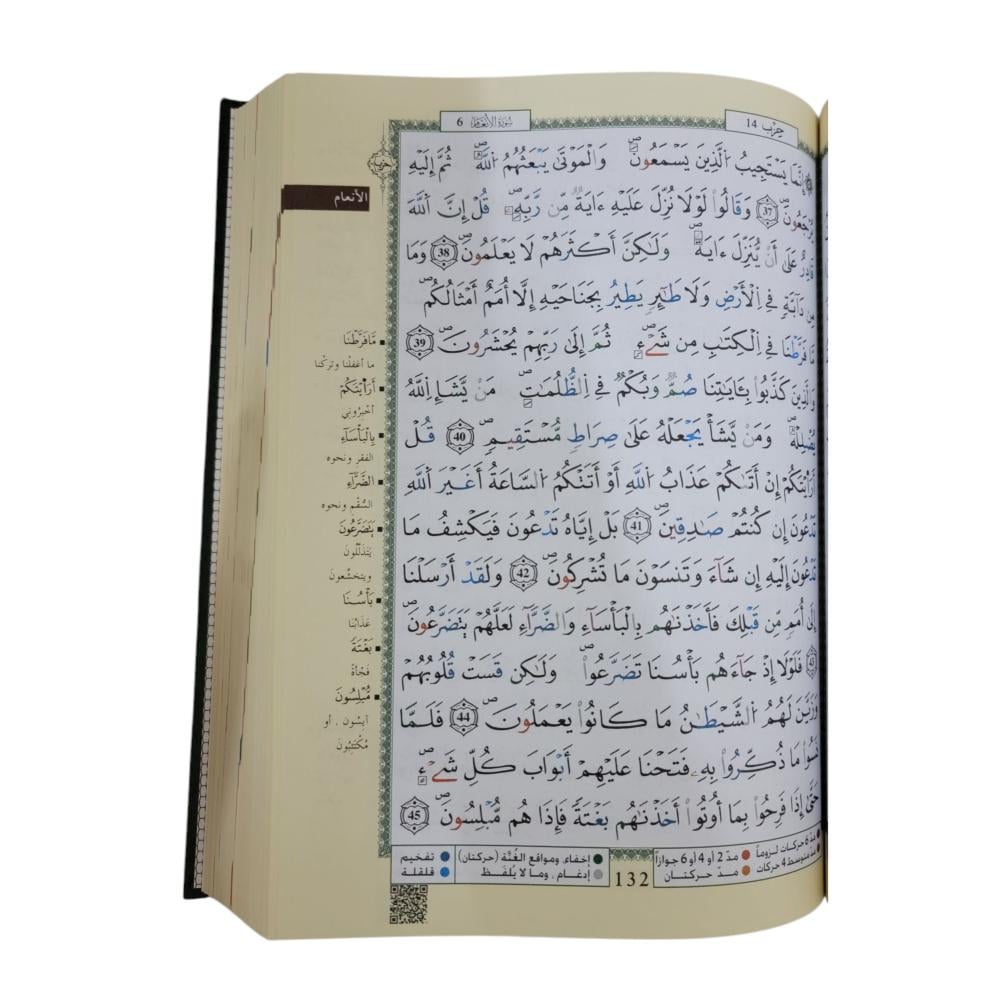 حِزْب 14
سُورَةُ الأَنْعَامِ 6
إِنَّمَا يَسْتَجِيبُ الذِينَ يَسْمَعُونَۖ وَالْمَوْتَىٰ يَبْعَثُهُمُ اللَّهُۖ ثُمَّ إِلَيْهِ
يُرْجَعُونَۖ 37 وَقَالُوا لَوْلَا نُزِّلَ عَلَيْهِ ءَايَةٌ مِّن رَّبِّهِۖ قُلْ إِنَّ اللَّهَ
قَادِرٌ عَلَىٰ أَنْ يُّنَزِّلَ ءَايَةًۖ وَلَٰكِنَّ أَكْثَرَهُمْ لَا يَعْلَمُونَۖ 38 وَمَا
مِن دَآبَّةٍ فِي اِلْأَرْضِ وَلَا طَٰٓئِرٍ يَطِيرُ بِجَنَاحَيْهِ إِلَّا أُمَمٌ أَمْثَالُكُمۖ
مَّا فَرَّطْنَا فِي اِلْكِتَٰبِ مِن شَيْءٍۖ ثُمَّ إِلَىٰ رَبِّهِمْ يُحْشَرُونَۖ 39
وَالذِينَ كَذَّبُوا بِـَٔايَٰتِنَا صُمٌّ وَبُكْمٌ فِي اِلظُّلُمَٰتِۖ مَنْ يَّشَإِ اِللَّهُ
يُضْلِلْهُۖ وَمَنْ يَّشَأْ يَجْعَلْهُ عَلَىٰ صِرَاطٍ مُّسْتَقِيمٍۖ 40 قُلْ
أَرَٰٓيْتَكُمْ إِنْ أَتَىٰكُمْ عَذَابُ اُللَّهِ أَوْ أَتَتْكُمُ اُلسَّاعَةُ أَغَيْرَ اَللَّهِ
تَدْعُونَ إِن كُنتُمْ صَٰدِقِينَۖ 41 بَلْ إِيَّاهُ تَدْعُونَ فَيَكْشِفُ مَا
تَدْعُونَ إِلَيْهِ إِن شَآءَ وَتَنسَوْنَ مَا تُشْرِكُونَۖ 42 وَلَقَدْ أَرْسَلْنَا
إِلَىٰ أُمَمٍ مِّن قَبْلِكَ فَأَخَذْنَٰهُم بِالْبَأْسَآءِ وَالضَّرَّآءِ لَعَلَّهُمْ يَتَضَرَّعُونَۖ
43 فَلَوْلَا إِذْ جَآءَهُم بَأْسُنَا تَضَرَّعُواۖ وَلَٰكِن قَسَتْ قُلُوبُهُمْ
وَزَيَّنَ لَهُمُ اُلشَّيْطَٰنُ مَا كَانُوا يَعْمَلُونَۖ 44 فَلَمَّا
نَسُوا مَا ذُكِّرُوا بِهِ فَتَحْنَا عَلَيْهِمْ أَبْوَٰبَ كُلِّ شَيْءٍۖ
حَتَّىٰ إِذَا فَرِحُوا بِمَا أُوتُوا أَخَذْنَٰهُم بَغْتَةً فَإِذَا هُم مُّبْلِسُونَۖ 45
حزب
الأنعام
مَّا فَرَّطْنَا
ما أغفلنا وتركنا
أَرَٰٓيْتَكُمْ
أخبروني
بِالْبَأْسَآءِ
الفقر ونحوه
الضَّرَّآءِ
السُّقم ونحوه
يَتَضَرَّعُونَ
يتذلّلون
ويتخشّعون
بَأْسُنَا
عذابُنا
بَغْتَةً
فَجْأةً
مُّبْلِسُونَ
آيسون ، أو
مُكتئبُون
مدّ 6 حركات لزوماً
مدّ 2 أو 4 أو 6 جوازاً
إخفاء، ومواقع الغُنَّة (حركتان)
تفخيم
مدّ متوسط 4 حركات
مدّ حركتان
إدغام ، وما لا يُلفَظ
قلقلة
132